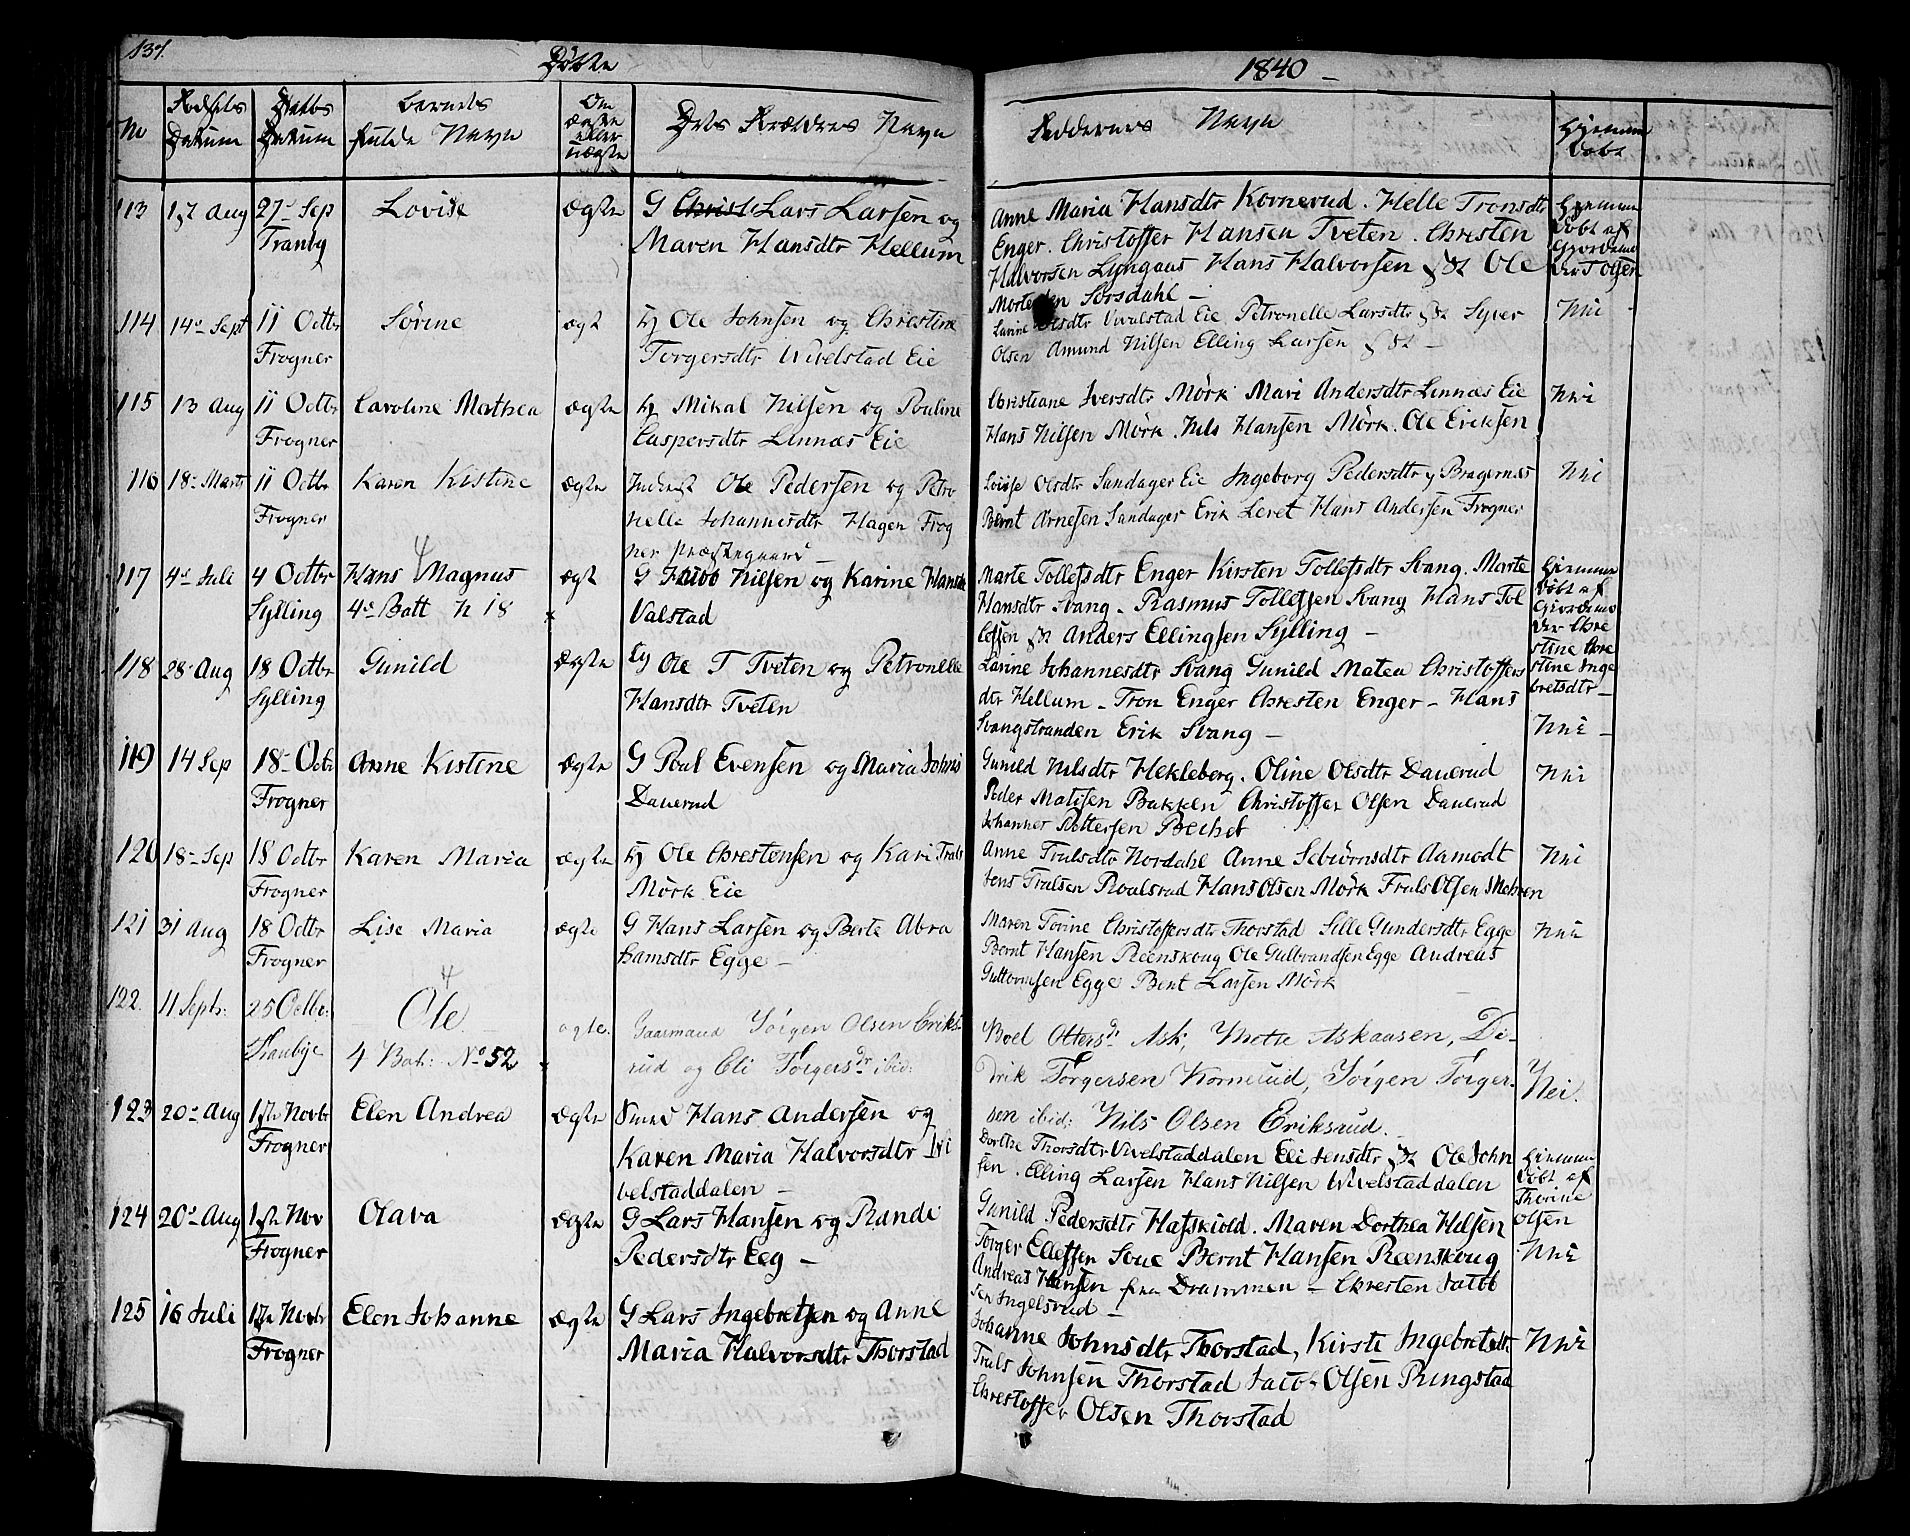 137.
Döbte
1840 –
No
Födsels Datum
Daabs Datum
Barnets fulde Navn
Om ægte eller uægte
Dets Forældres Navn
Faddernes Navn
Hjemmedöbt
113 Aug 27 Sep Lovise Ægte G Lars Larsen og
Tranby Maren Hansdtr Hellum
Anne Maria Hansdtr Kornerud. Helle Tronsdtr
Enger. Christoffer Hansen Tveten. Christen
Halvorsen Hans Halvorsen Ole
Sörsdahl –
114 14 Sept 11 Octbr Sörine ægt Ole Johnsen og Christine
Frogner Torgersdtr Wivelstad Eie
Larine Olsdtr Vivelstad Eie Petronelle Larsdtr Syver Nei
Olsen Amund Nilsen Elling Larsen
115 13 Aug 11 Octbr Caroline Mathea ægte Mikal Nilsen og Pouline
Frogner Caspersdtr Linnæs Eie
Christiane Iversdtr Mörk Mari Andersdtr Linnæs Eie Nei
Hans Nilsen Mörk. Nils Hansen Mörk. Ole Eriksen
116 18 Marts 11 Octbr Karen Kistine ægte Inderst Ole Pedersen og Petro
Frogner nelle Johannesdtr Hagen Frog
ner præstegaard –
Lovise Olsdtr Sandager Eie Ingeborg Pedersdtr Bragernæs Nei
Bernt Arnesen Sandager Erik Leret Hans Andersen Frogner
117 4 Juli 4 Octbr Hans Magnus ægt G Nilsen og Karine Hansdtr
Sylling 4 Batt N 18 Valstad
Marte Tollefsdtr Enger Kirsten Tollefsdtr Svang. Marte
Hansdtr Svang – Rasmus Tollefsen Svang Hans Tol
lefsen Anders Ellingsen Sylling –
Hjemmedöbt af Gjordemoder Chrestine Ingebretsdtr –
118 28 Aug 18 Octbr Gunild Ægte Ole T Tveten og Petronelle
Sylling Hansdtr Tveten
Larine Johannesdtr Svang Gunild Matea Christoffers
dtr Hellum – Tron Enger Chresten Enger – Hans
Svangstranden Erik Svang – Nei –
119 14 Sep 18 Octbr Anne Kistine Ægte G Poul Evensen og Maria Johns
Frogner Dauerud
Gunild Nilsdtr Hekleberg. Oline Olsdtr Dauerud Nei
Peder Matisen Bakken Christoffer Olsen Dauerud
120 18 Sep 18 Octbr Karen Maria ægte Ole Chrestensen og Kari Truls
Frogner Mörk Eie
Anne Trulsdtr Nordahl Anne Aamodt Nei
Jens Trulsen Roalsrud Hans Olsen Mörk Truls Olsen
121 31 Aug 18 Octbr Lise Maria ægte G Hans Larsen og Berte Abra
Frogner hamsdtr Egge –
Maren Torine Christoffersdtr Thorstad Sille Gundersdtr Egge Nei
Bernt Hansen Reenskoug Ole Gulbrandsen Egge Andreas
Guttormsen Egge Bernt Larsen Mörk
122. 11 Septr: 25 Octbr: Ole ægte. Gaarmand Jörgen Olsen Eriks-
Tranbye 4 Bat: No 52 rud og Eli Törgersdr ibid:
Boel Ottersdr Ask, Mette Askaasen, Di-
drik Törgersen Kornerud, Jörgen Törger- Nei.
sen ibid: Nils Olsen Eriksrud.
123 20 Aug 1ste Novbr Elen Andrea Ægte Hans Andersen og
Frogner Karen Maria Halvorsdtr Wi
velstaddalen –
Dorthe Thorsdtr Vivelstaddalen Eli Jensdtr Ole John
sen. Elling Larsen Hans Nilsen Wivelstaddalen
Hjemmedöbt af Thorine Olsen
124 20 Aug 1ste Nov Olava Ægte G Lars Hansen og Randi
Frogner Pedersdtr Eeg –
Gunild Pedersdtr Hafskiold. Maren Dorthea Nilsen
Torger Ellefsen Bernt Hansen Reenskoug Nei
Andreas Hansen fra Drammen – Chresten Jacob
sen Ingelsrud –
125 16 Juli 1ste Novbr Elen Johanne Ægte G Lars Ingebretsen og Anne
Frogner Maria Halvorsdtr Thorstad
Johanne Johnsdtr Thorstad, Kirsti Ingebretsdtr Nei
Truls Johnsen Thorstad Jacob Olsen Ringstad
Chrestoffer Olsen Thorstad